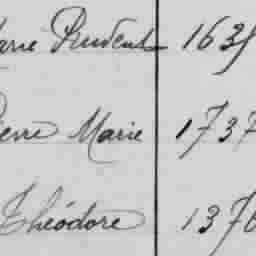 Marie Prudent 1635
Pierre Marie 1737
Théodore 1376